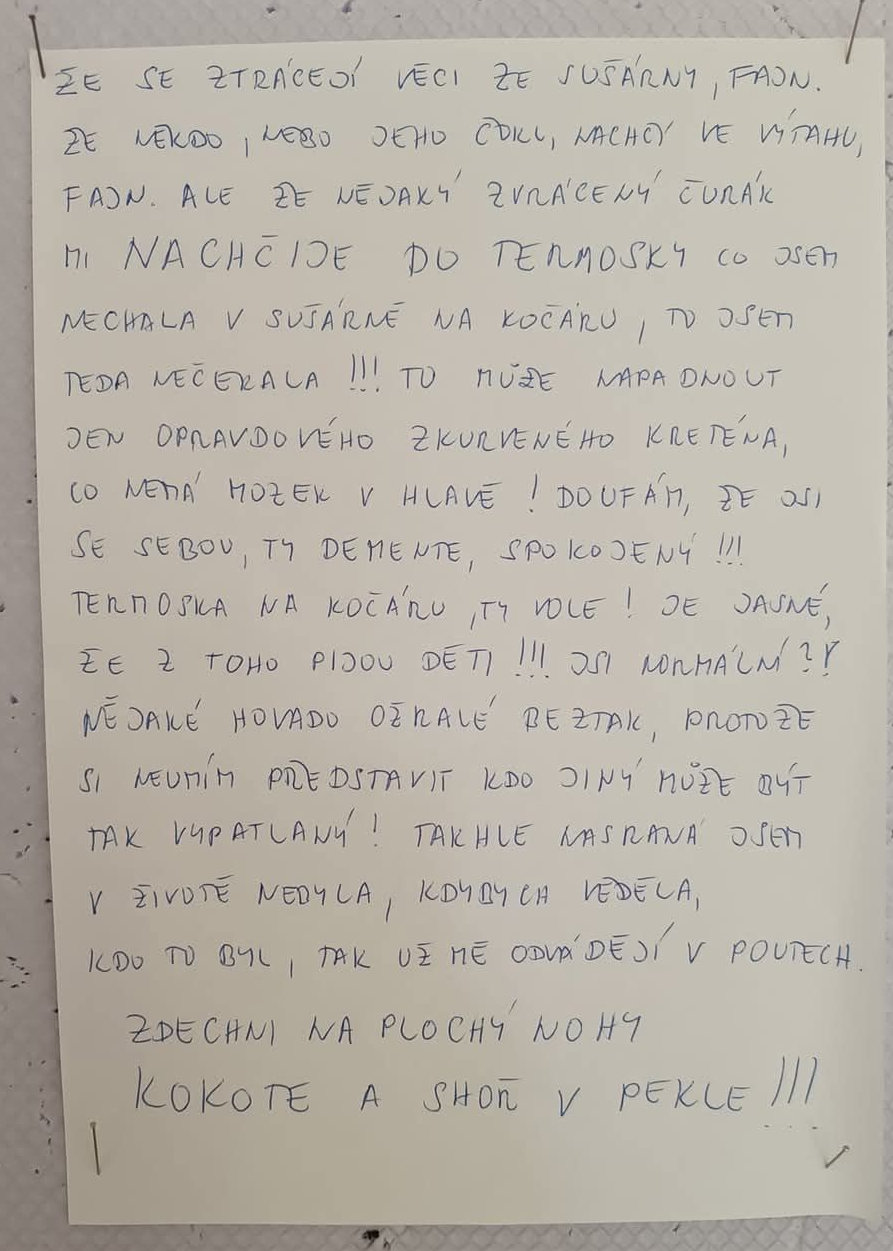 ŽE SE ZTRÁCEJÍ VĚCI ZE SUŠÁRNY, FAJN.
ŽE NĚKDO, NEBO JEHO ČOKL, NACHCÝ VE VÝTAHU,
FAJN. ALE ŽE NĚJAKÝ ZVRÁCENÝ ČURÁK
MI NACHČIJE DO TERMOSKY CO JSEM
NECHALA V SUŠÁRNĚ NA KOČÁRU, TO JSEM
TEDA NEČEKALA!!! TO MŮŽE NAPADNOUT
JEN OPRAVDOVÉHO ZKURVENÉHO KRETÉNA,
CO NEMÁ MOZEK V HLAVĚ! DOUFÁM, ŽE JSI
SE SEBOU, TY DEMENTE, SPOKOJENÝ!!!
TERMOSKA NA KOČÁRU, TY VOLE! JE JASNÉ,
ŽE Z TOHO PIJOU DĚTI!!! JSI NORMÁLNÍ?!
NĚJAKÉ HOVADO OŽRALÉ BEZTAK, PROTOŽE
SI NEUMÍM PŘEDSTAVIT KDO JINÝ MŮŽE BÝT
TAK VYPATLANÝ! TAKHLE NASRANÁ JSEM
V ŽIVOTĚ NEBYLA, KDYBYCH VĚDĚLA,
KDO TO BYL, TAK UŽ MĚ ODVÁDĚJÍ V POUTECH.
ZDECHNI NA PLOCHÝ NOHY
KOKOTE A SHOŘ V PEKLE!!!